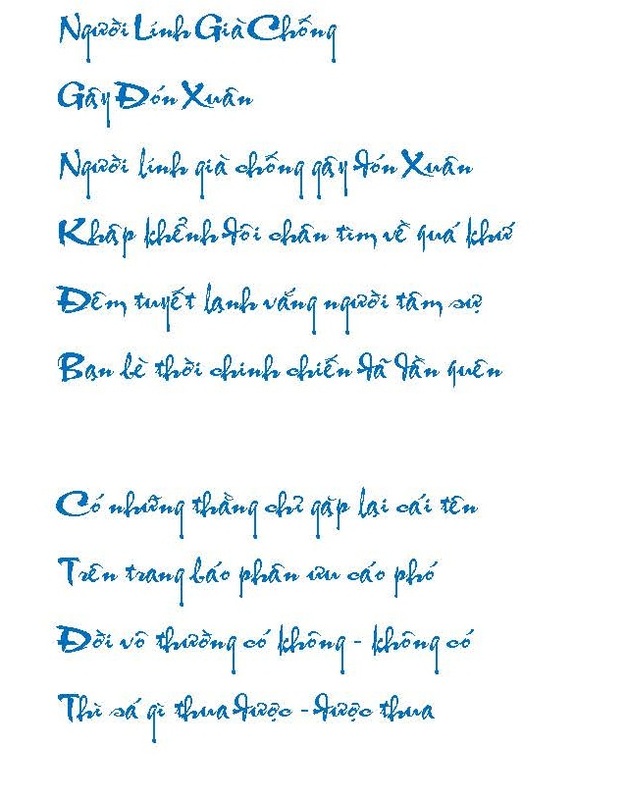 Người Lính Già Chống
Gậy Đón Xuân
Người lính già chống gậy đón Xuân
Khập khểnh đôi chân tìm về quá khứ
Đêm tuyết lạnh vắng người tâm sự
Bạn bè thời chinh chiến đã dần quên
Có những thằng chỉ gặp lại cái tên
Trên trang báo phân ưu cáo phó
Đời vô thường có không - không có
Thì sá gì thua được - được thua